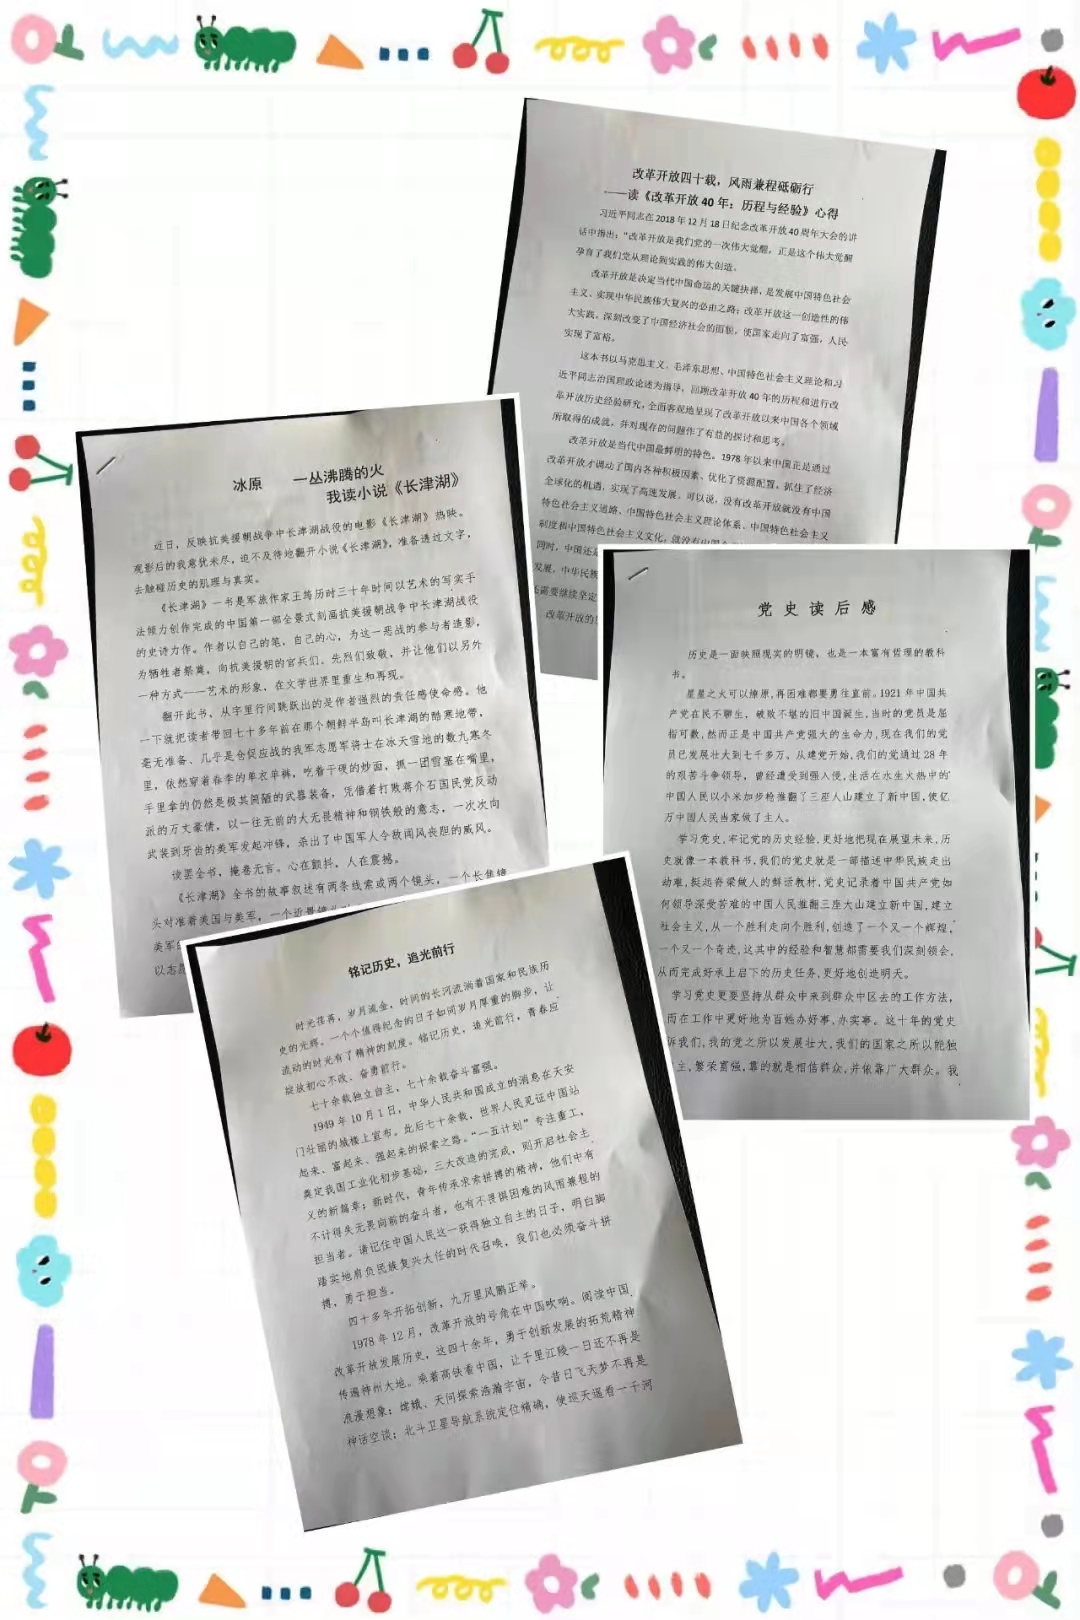 改革开放四十载，风雨兼程砥砺行
——读《改革开放 40 年：历程与经验》心得
习近平同志在 2018 年 12 月 18 日纪念改革开放 40 周年大会的讲
话中指出："改革开放是我们党的一次伟大觉醒，正是这个伟大觉醒
孕育了我们党从理论到实践的伟大创造。
改革开放是决定当代中国命运的关键抉择，是发展中国特色社会
主义、实现中华民族伟大复兴的必由之路；改革开放这一创造性的伟
大实践，深刻改变了中国经济社会的面貌，使国家走向了富强，人民
实现了富裕。
这本书以马克思主义、毛泽东思想、中国特色社会主义理论和习
近平同志治国理政论述为指导，回顾改革开放 40 年的历程和进行改
革开放历史经验研究，全面客观地呈现了改革开放以来中国各个领域
所取得的成就，并对现存的问题作了有益的探讨和思考。
改革开放是当代中国最鲜明的特色。1978 年以来中国正是通过
改革开放才调动了国内各种积极因素、优化了资源配置，抓住了经济
全球化的机遇，实现了高速发展。可以说，没有改革开放就没有中国
特色社会主义道路、中国特色社会主义理论体系、中国特色社会主义
制度和中国特色社会主义文化，就没有中国
同时，中国还是
发展，中华民族
需要继续坚定
改革开放的
冰原 一丛沸腾的火
我读小说《长津湖》
近日，反映抗美援朝战争中长津湖战役的电影《长津湖》热映。
观影后的我意犹未尽，迫不及待地翻开小说《长津湖》，准备透过文字，
去触碰历史的肌理与真实。
《长津湖》一书是军旅作家王筠历时三十年时间以艺术的写实手
法倾力创作完成的中国第一部全景式刻画抗美援朝战争中长津湖战役
的史诗力作。作者以自己的笔，自己的心，为这一恶战的参与者造影，
为牺牲者祭奠，向抗美援朝的官兵们、先烈们致敬，并让他们以另外
一种方式——艺术的形象，在文学世界里重生和再现。
翻开此书，从字里行间跃跃出的是作者强烈的责任感使命感。他
一下就把读者带回七十多年前在那个朝鲜半岛叫长津湖的酷寒地带，
毫无准备、几乎是仓促应战的我军志愿军将士在冰天雪地的数九寒冬
里，依然穿着春季的单衣单裤，吃着干硬的炒面，抓一团雪塞在嘴里，
手里拿的仍然是极其简陋的武器装备，凭借着打败蒋介石国民党反动
派的万丈豪情，以一往无前的大无畏精神和钢铁般的意志，一次次向
武装到牙齿的美军发起冲锋，杀出了中国军人令敌闻风丧胆的威风。
读罢全书，掩卷无言。心在颤抖，人在震撼。
《长津湖》全书的故事叙述有两条线索或两个镜头，一个长焦镜
头对准着美国与美军，一个近景镜头
美军的
以志愿
党史读后感
历史是一面映照现实的明镜，也是一本富有哲理的教科
书。
星星之火可以燎原，再困难都要勇往直前。1921 年中国共
产党在民不聊生，破败不堪的旧中国诞生，当时的党员是屈
指可数，然而正是中国共产党强大的生命力，现在我们的党
员已发展壮大到七千多万。从建党开始，我们的党通过 28 年
的艰苦斗争领导，曾经遭受到强入侵，生活在水生火热中的
中国人民以小米加步枪推翻了三座大山建立了新中国，使亿
万中国人民当家做了主人。
学习党史，牢记党的历史经验，更好地把现在展望未来，历
史就像一本教科书，我们的党史就是一部描述中华民族走出
动难，挺起脊梁做人的鲜活教材，党史记录着中国共产党如
何领导深受苦难的中国人民推翻三座大山建立新中国，建立
社会主义，从一个胜利走向个胜利，创造了一个又一个辉煌，
一个又一个奇迹，这其中的经验和智慧都需要我们深刻领会，
从而完成好承上启下的历史任务，更好地创造明天。
学习党史更要坚持从群众中来到群众中区去的工作方法，
而在工作中更好地为百姓办好事，办实事。这十年的党史
诉我们，我的党之所以发展壮大，我们的国家之所以能独
主，繁荣富强，靠的就是相信群众，并依靠广大群众。我
铭记历史，追光前行
时光荏苒，岁月流金，时间的长河流淌着国家和民族历
史的光辉。一个个值得纪念的日子如同岁月厚重的脚步，让
流动的时光有了精神的刻度。铭记历史，追光前行，青春应
绽放初心不改、奋勇前行。
七十余载独立自主，七十余载奋斗富强。
1949 年 10 月 1 日，中华人民共和国成立的消息在天安
门壮丽的城楼上宣布。此后七十余载，世界人民见证中国站
起来、富起来、强起来的探索之路。"一五计划"专注重工，
奠定我国工业化初步基础，三大改造的完成，则开启社会主
义的新篇章；新时代，青年传承求索拼搏的精神，他们中有
不计得失无畏向前的奋斗者，也有不畏惧困难的风雨兼程的
担当者。请记住中国人民这一获得独立自主的日子，明白脚
踏实地肩负民族复兴大任的时代召唤，我们也必须奋斗拼
搏，勇于担当。
四十多年开拓创新，九万里风鹏正举。
1978 年 12 月，改革开放的号角在中国吹响。阅读中国
改革开放发展历史，这四十余年，勇于创新发展的拓荒精神
传遍神州大地。乘着高铁看中国，让千里江陵一日还不再是
浪漫想象；嫦娥、天问探索浩瀚宇宙，令昔日飞天梦不再是
神话空谈；北斗卫星导航系统定位精确，使巡天遥看一千河